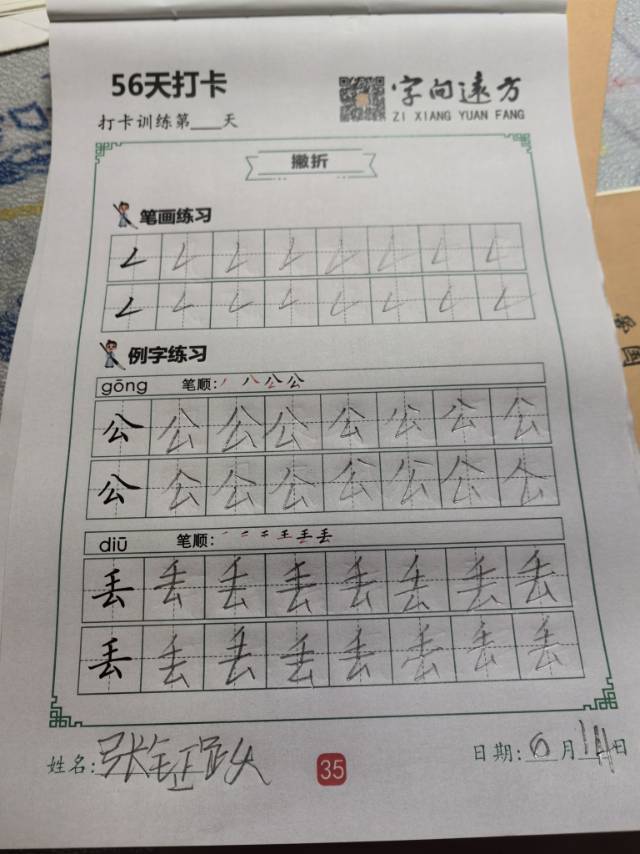 56天打卡
字向远方
打卡训练第___天
ZI XIANG YUAN FANG
撇折
笔画练习
例字练习
gōng 笔顺: 丿 八 公 公
公 公 公 公 公 公 公 公
公 公 公 公 公 公 公 公
diū 笔顺: 一 二 王 丢 丢
丢 丢 丢 丢 丢 丢 丢 丢
丢 丢 丢 丢 丢 丢 丢 丢
姓名: 张
35
日期: 6月11日